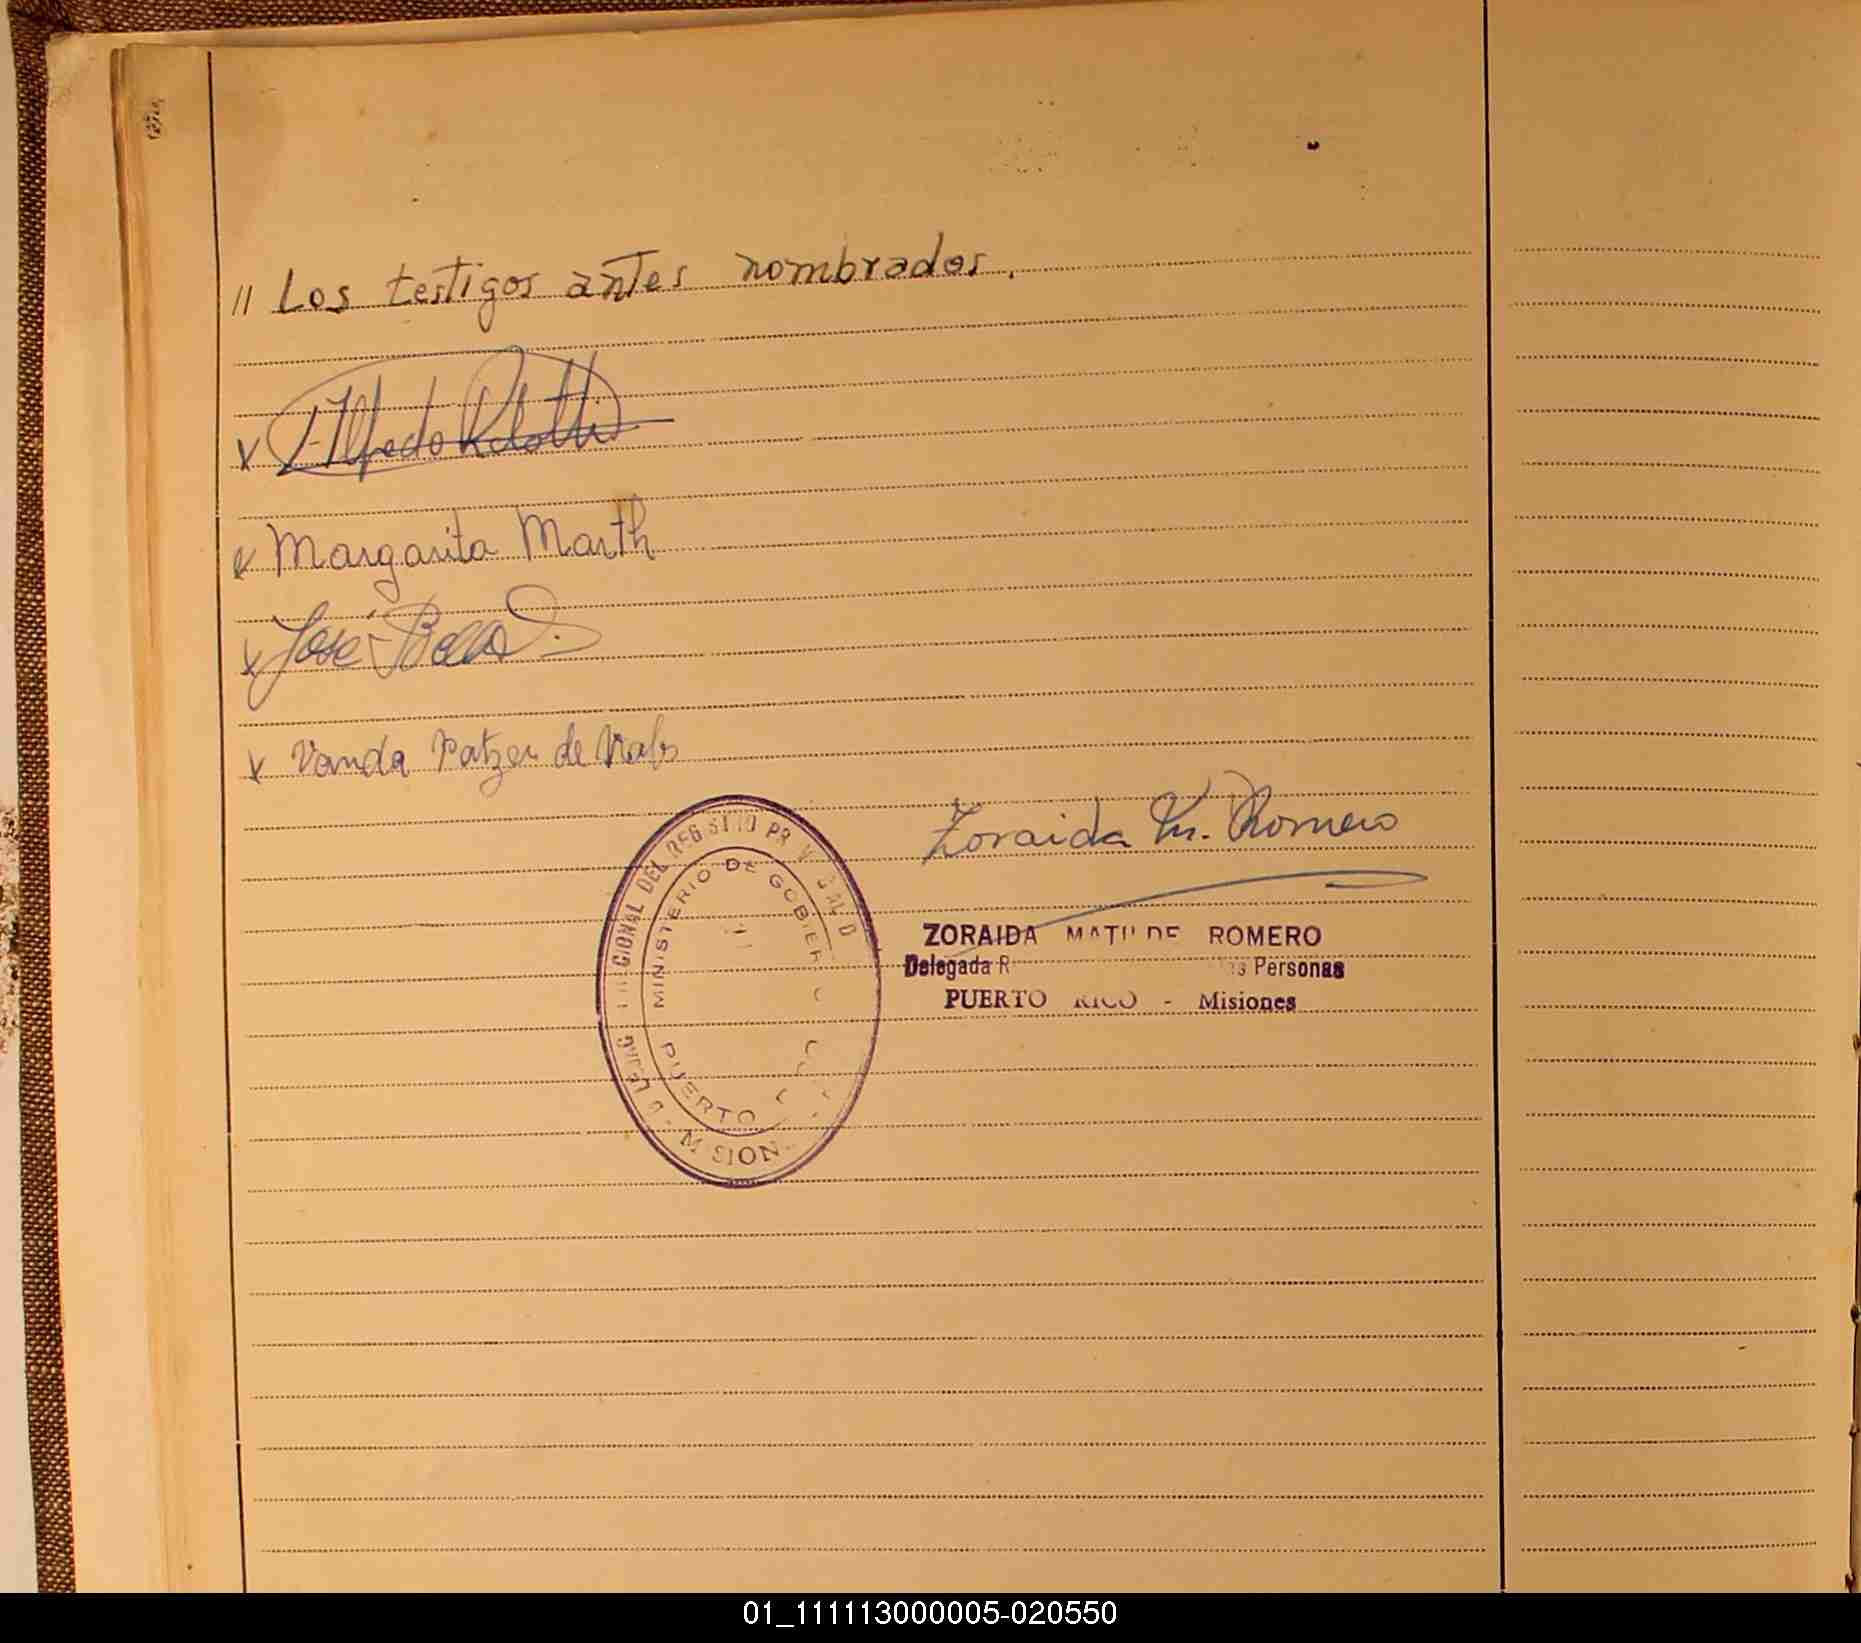 // Los testigos antes nombrados.
x Alfredo
x Margarita Marth
x José
x Vanda Patzer de
Zoraida M. Romero
DEL REGISTRO
MINISTERIO DE GOBIER
PUERTO
ZORAIDA MATILDE ROMERO
Delegada R Personas
PUERTO RICO - Misiones
01_111113000005-020550